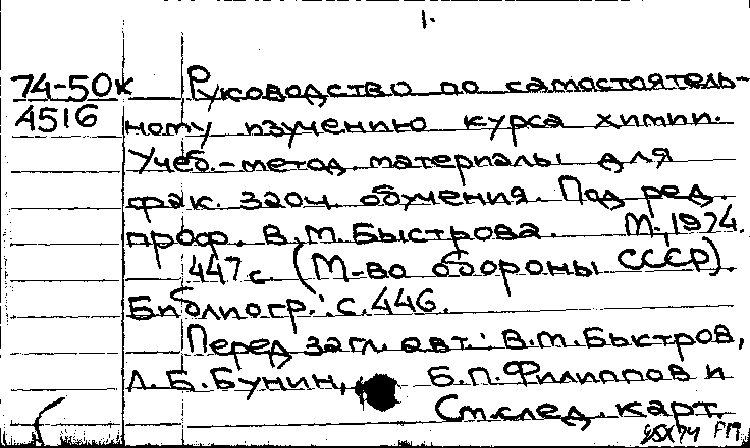 1.
74-50к Руководство по самостоятель-
4516 ному изучению курса химии.
Учеб.-метод. материалы для
фак. заоч. обучения. Под ред.
проф. В.М.Быстрова. М.,1974.
447 с. (М-во обороны СССР).
Библиогр.: с.446.
Перед загл. авт.: В.М.Быстров,
Л.Б.Бунин, Б.П.Филиппов и
См.след. карт.